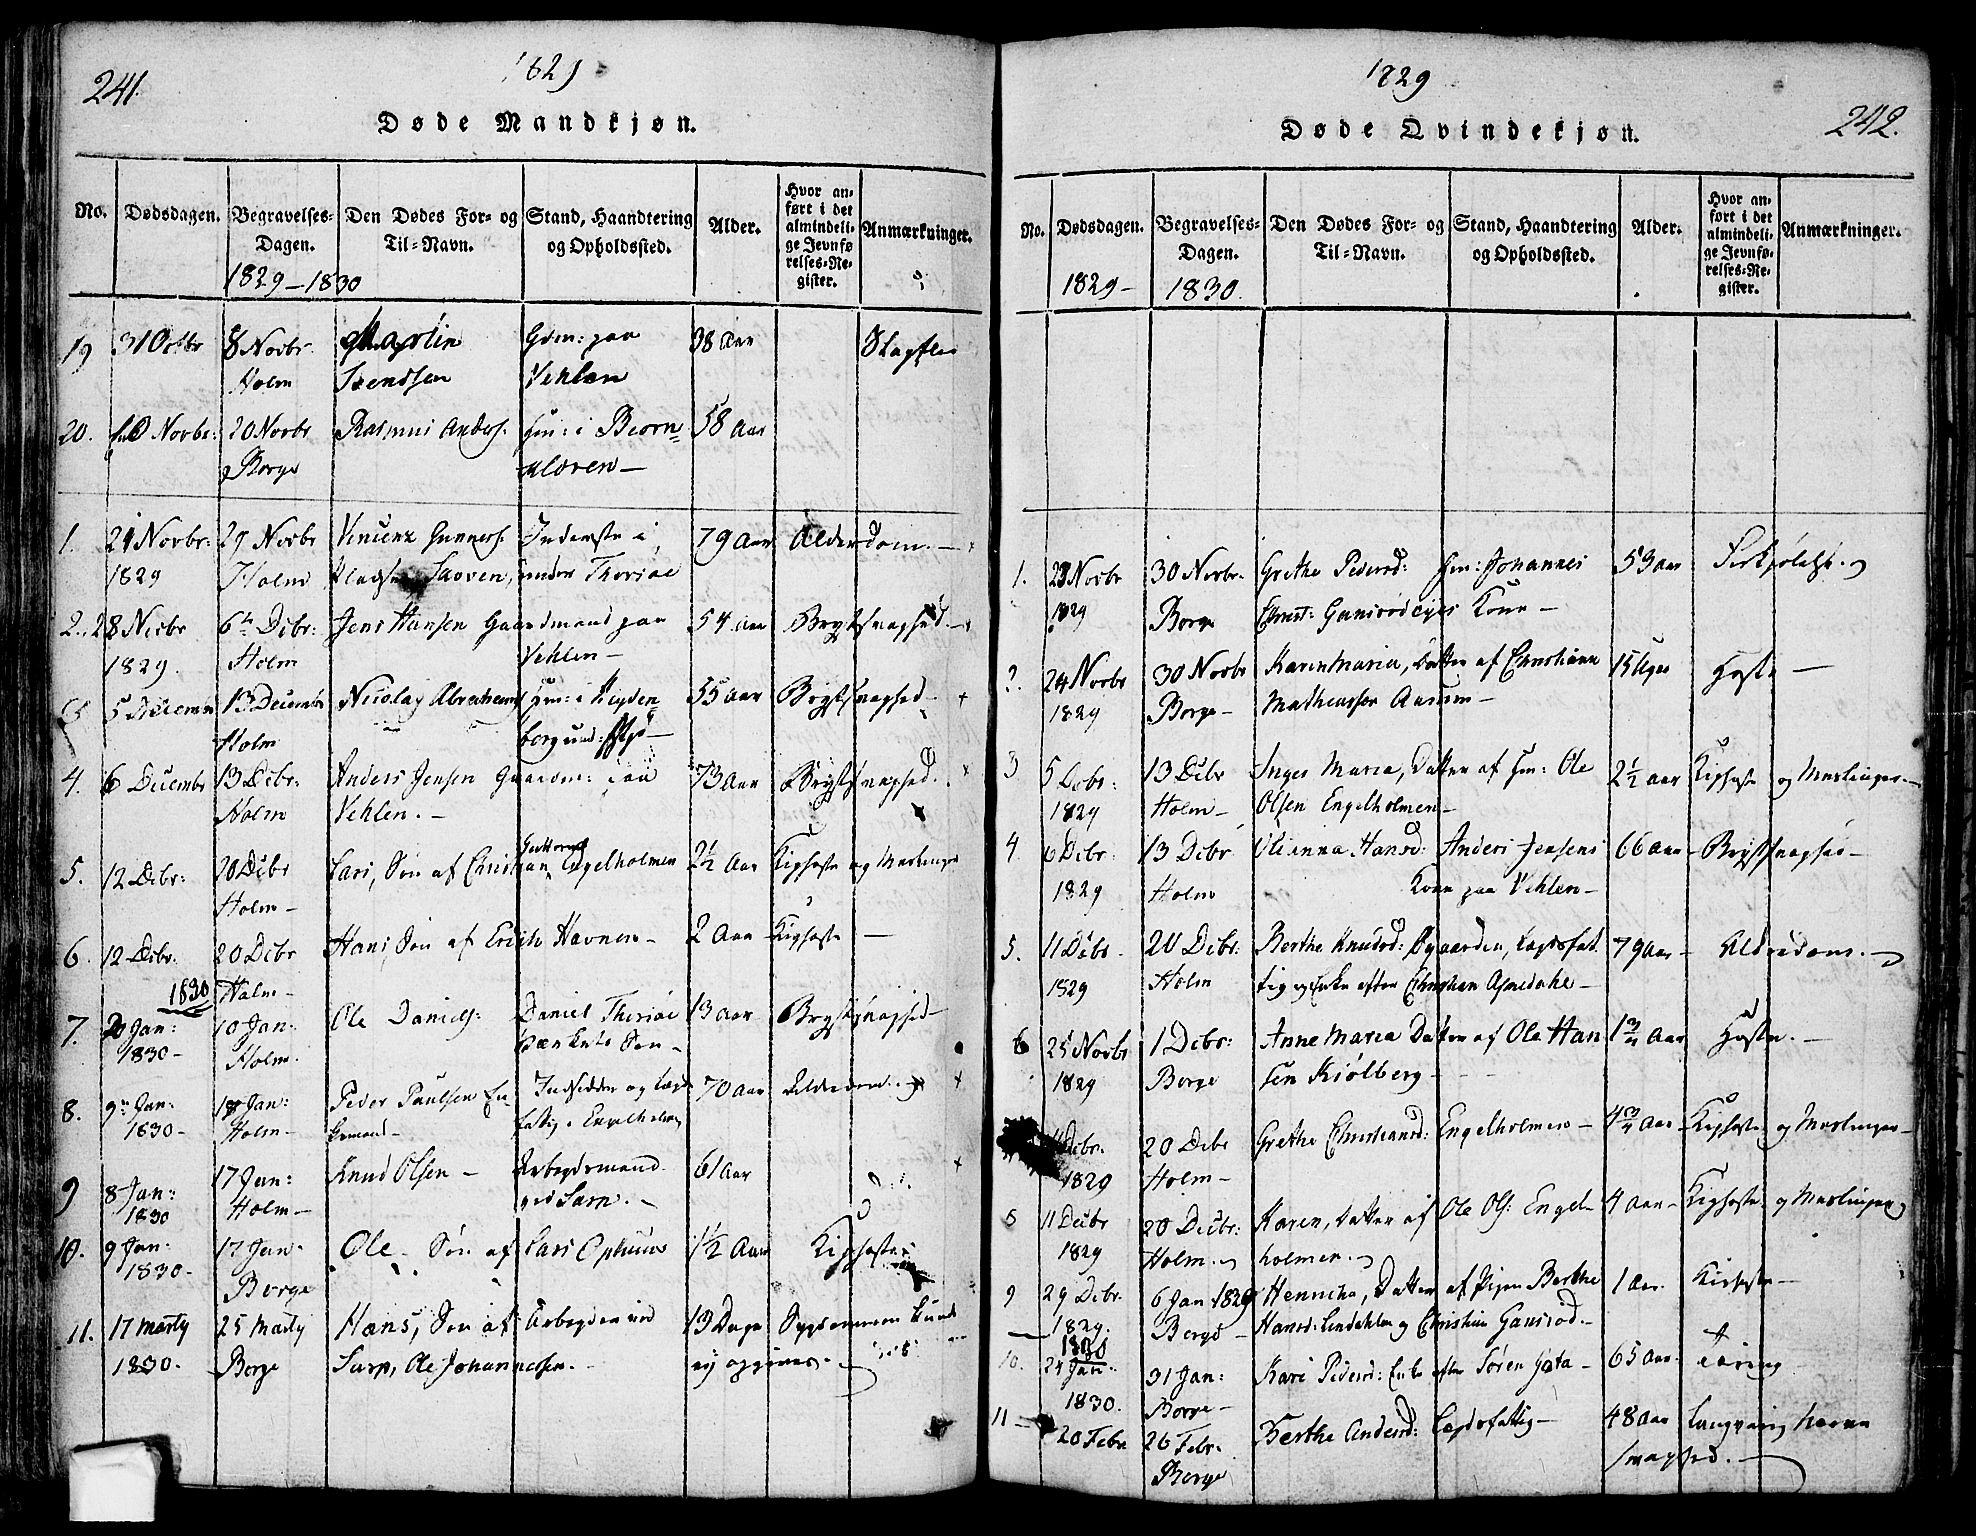 241.
1829
Døde Mandkjøn.
No. Dødsdagen. Begravelses-Dagen. Den Dødes For- og Til-Navn. Stand, Haandtering og Opholdssted. Alder. Hvor anført i det almindelige Jevnførelses-Register. Anmærkninger.
1829 – 1830
19 31 Octbr 8 Novbr Martin Gdm: paa 38 Aar
Holm Svendsen Vehlen
20. Novbr: 20 Novbr Rasmus Anders. Hm: i Biorn= 58 Aar
Borge kloven –
1. 21 Novbr: 29 Novbr Vincenz Gunners. Inderste i 79 Aar Alderdom. –
1829 Holm under Thorsøe
2. 28 Novbr 6te Debr: Jens Hansen Gaardmand paa 54 Aar Brystsvaghed. –
1829. Holm Vehlen –
3 5 Decembr 13 Decembr Nicolay Abrahams Hm: i 55 Aar Brystsvaghed –
Holm
4. 6 Decembr 13 Debr: Anders Jensen Gaardm: paa 73 Aar Brystsvaghed.
Holm Vehlen. –
5. 12 Debr: 20 Debr Lars, Søn af Christian Engelholmen 2½ Aar Kighoste og Meslinger
Holm –
6. 12 Debr. 20 Debr Hans, Søn af Erich Havnen – 2 Aar – Kighoste –
1830 Holm –
7. Jan: 10 Jan: Ole Daniels: Daniel Thorsøe 13 Aar Brystsvaghed –
1830 – Holm. Søn –
8. 9de Jan: 18 Jan: Peder Paulsen En- Indsidder og Lægds 70 Aar Alderdom.
1830 – Holm – kemand – fattig i Engelholmen
9 8 Jan: 17 Jan: Knud Olsen – Arbeydsmand 61 Aar
1830 Holm – ved Sarp. –
10. 9 Jan: 17 Jan: Ole – Søn af Lars Opsund 1½ Aar Kighoste
1830 – Borge
11. 17 Marty 25 Marty Hans, Søn af Arbeyder ved 13 Dage Sygdommen kund
1830. Borge Sarp, Ole Johannessen. – ey opgives. –
1829
242.
Døde Qvindekjøn.
No. Dødsdagen. Begravelses-Dagen. Den Dødes For- og Til-Navn. Stand, Haandtering og Opholdssted. Alder. Hvor anført i det almindelige Jevnførelses-Register. Anmærkninger.
1829 – 1830.
1. 23 Novbr 30 Novbr. Grethe Pedersd: Hm: Johannes 53 Aar
1829 Borge Christ: Gansrødeyes Kone –
2. 24 Novbr 30 Novbr Karen Maria, Datter af Christian 15 Uger Hoste –
1829 Borge – Mathiessen Aasum –
3 5 Debr: 13 Debr Inger Maria, Datter af Hm: Ole 2½ Aar Kighoste og Meslinger. –
1829 Holm – Olsen Engelholmen –
4 6 Debr. 13 Debr Hansd: Anders Jensens 66 Aar – Brystsvaghed –
1829 Holm Kone paa Vehlen –
5. 11 Debr. 20 Debr: Berthe Knudsd: Øgaarden, Lægdsfat 79 Aar – Alderdom. –
1829 Holm tig og Enke efter Christian –
6 25 Novbr 1 Debr: Anne Maria Datter af Ole Han 1¾ Aar Hoste. –
1829 Borge sen Kiølberg –
11 Debr. 20 Debr Grethe Christiansd: Engelholmen – 4¾ Aar – Kighoste og Meslinger –
1829 Holm –
8 11 Debr 20 Debr: Karen, Datter af Ole Ols: Engel- 4 Aar – Kighoste og Meslinger
1829 Holm. holmen.
9 29 Debr. 6 Jan 1829 Henricha, Datter af Pigen Berthe 1 Aar. Kighoste –
1829. Borge – Hansd: Lindahlen og Christian Gansrød. –
1830
10. 24 Jan: 31 Jan: Kari Pedersd: Enke efter Søren 65 Aar. Tæring
1830. Borge –
11 – 20 Febr. 26 Febr. Berthe Andersd: Lægdsfattig – 48 Aar Langvarig
Borge svaghed. –